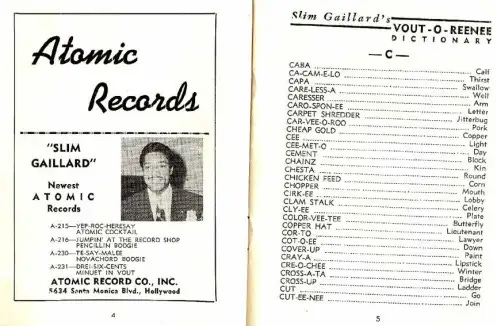 Atomic
Records
"SLIM
GAILLARD"
Newest
ATOMIC
Records
A-215—YEP-ROC-HERESAY
ATOMIC COCKTAIL
A-216—JUMPIN' AT THE RECORD SHOP
PENCILLIN BOOGIE
A-230—TE-SAY-MALEE
NOVACHORD BOOGIE
A-231—DREI-SIX-CENTS
MINUET IN VOUT
ATOMIC RECORD CO., INC.
5634 Santa Monica Blvd., Hollywood
4
Slim Gaillard's
VOUT-O-REENEE
DICTIONARY
—C—
CABA ... Calf
CA-CAM-E-LO ... Thirst
CAPA ... Swallow
CARE-LESS-A ... Well
CARESSER ... Arm
CARO-SPON-EE ... Letter
CARPET SHREDDER ... Jitterbug
CAR-VEE-O-ROO ... Pork
CHEAP GOLD ... Copper
CEE ... Light
CEE-MET-O ... Day
CEMENT ... Block
CHAINZ ... Kin
CHESTA ... Round
CHICKEN FEED ... Corn
CHOPPER ... Mouth
CIRK-EE ... Lobby
CLAM STALK ... Celery
CLY-EE ... Plate
COLOR-VEE-TEE ... Butterfly
COPPER HAT ... Lieutenant
COR-TO ... Lawyer
COT-O-EE ... Down
COVER-UP ... Paint
CRAY-A ... Lipstick
CRE-O-CHEE ... Winter
CROSS-A-TA ... Bridge
CROSS-UP ... Ladder
CUT ... Go
CUT-EE-NEE ... Join
5